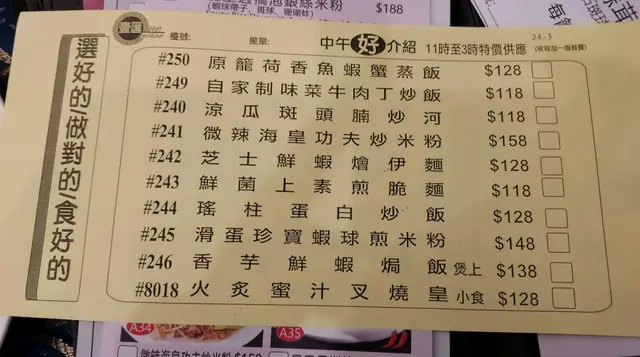 $188
(蝦球帶子、斑球、珊瑚蚌)
檯號:
搬單:
中午好介紹
11時至3時特價供應
24-3
(收取加一服務費)
選好的/做對的/食好的
#250 原籠荷香魚蝦蟹蒸飯 $128
#249 自家制味菜牛肉丁炒飯 $118
#240 涼瓜斑頭腩炒河 $118
#241 微辣海皇功夫炒米粉 $158
#242 芝士鮮蝦燴伊麵 $128
#243 鮮菌上素煎脆麵 $118
#244 瑤柱蛋白炒飯 $128
#245 滑蛋珍寶蝦球煎米粉 $148
#246 香芋鮮蝦焗飯 煲上 $138
#8018 火炙蜜汁叉燒皇 小食 $128
A34
A35